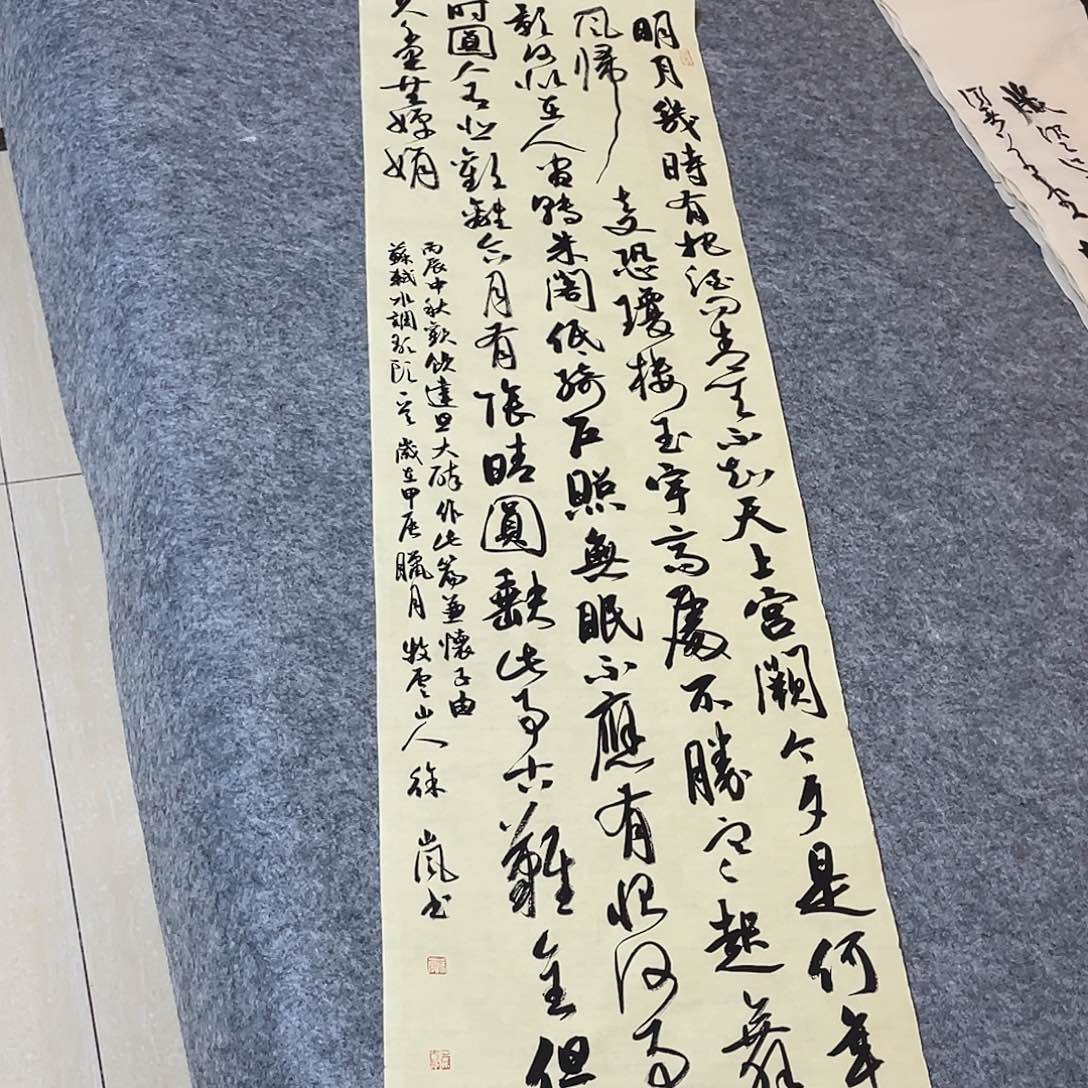 明月幾時有把酒问青天不知天上宮闕今夕是何年
风歸去又恐瓊樓玉宇高處不勝寒起舞
影何似在人間轉朱閣低綺戶照無眠不應有恨何事
時圓人有悲歡離合月有陰晴圓缺此事古難全但
久千里共嬋娟
丙辰中秋歡飲達旦大醉作此篇兼懷子由
蘇軾水調歌頭一首歲在甲辰臘月牧雲山人徐嵐书